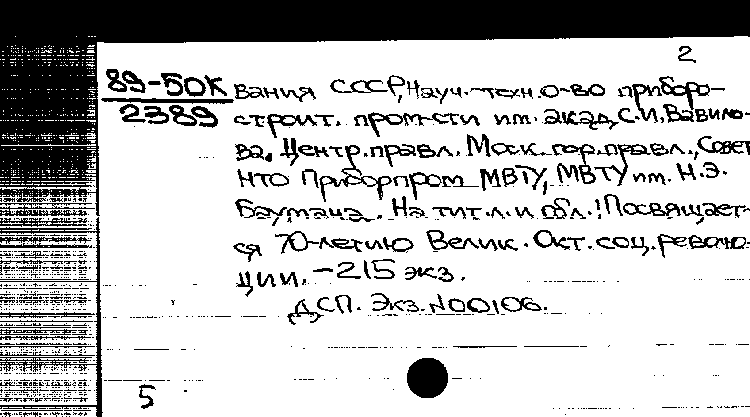 2
89-50К вания СССР, Науч.-техн. о-во приборо-
2389 строит. пром-сти им. акад. С.И. Вавило-
ва. Центр. правл. Моск. гор. правл., Совет
НТО Приборпром МВТУ, МВТУ им. Н.Э.
Баумана. На тит. л. и обл.: Посвящает-
ся 70-летию Велик. Окт. соц. револю-
ции. - 215 экз.
ДСП. Экз. N00106.
5